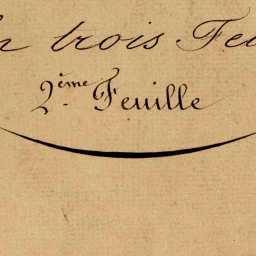 trois
2ème Feuille